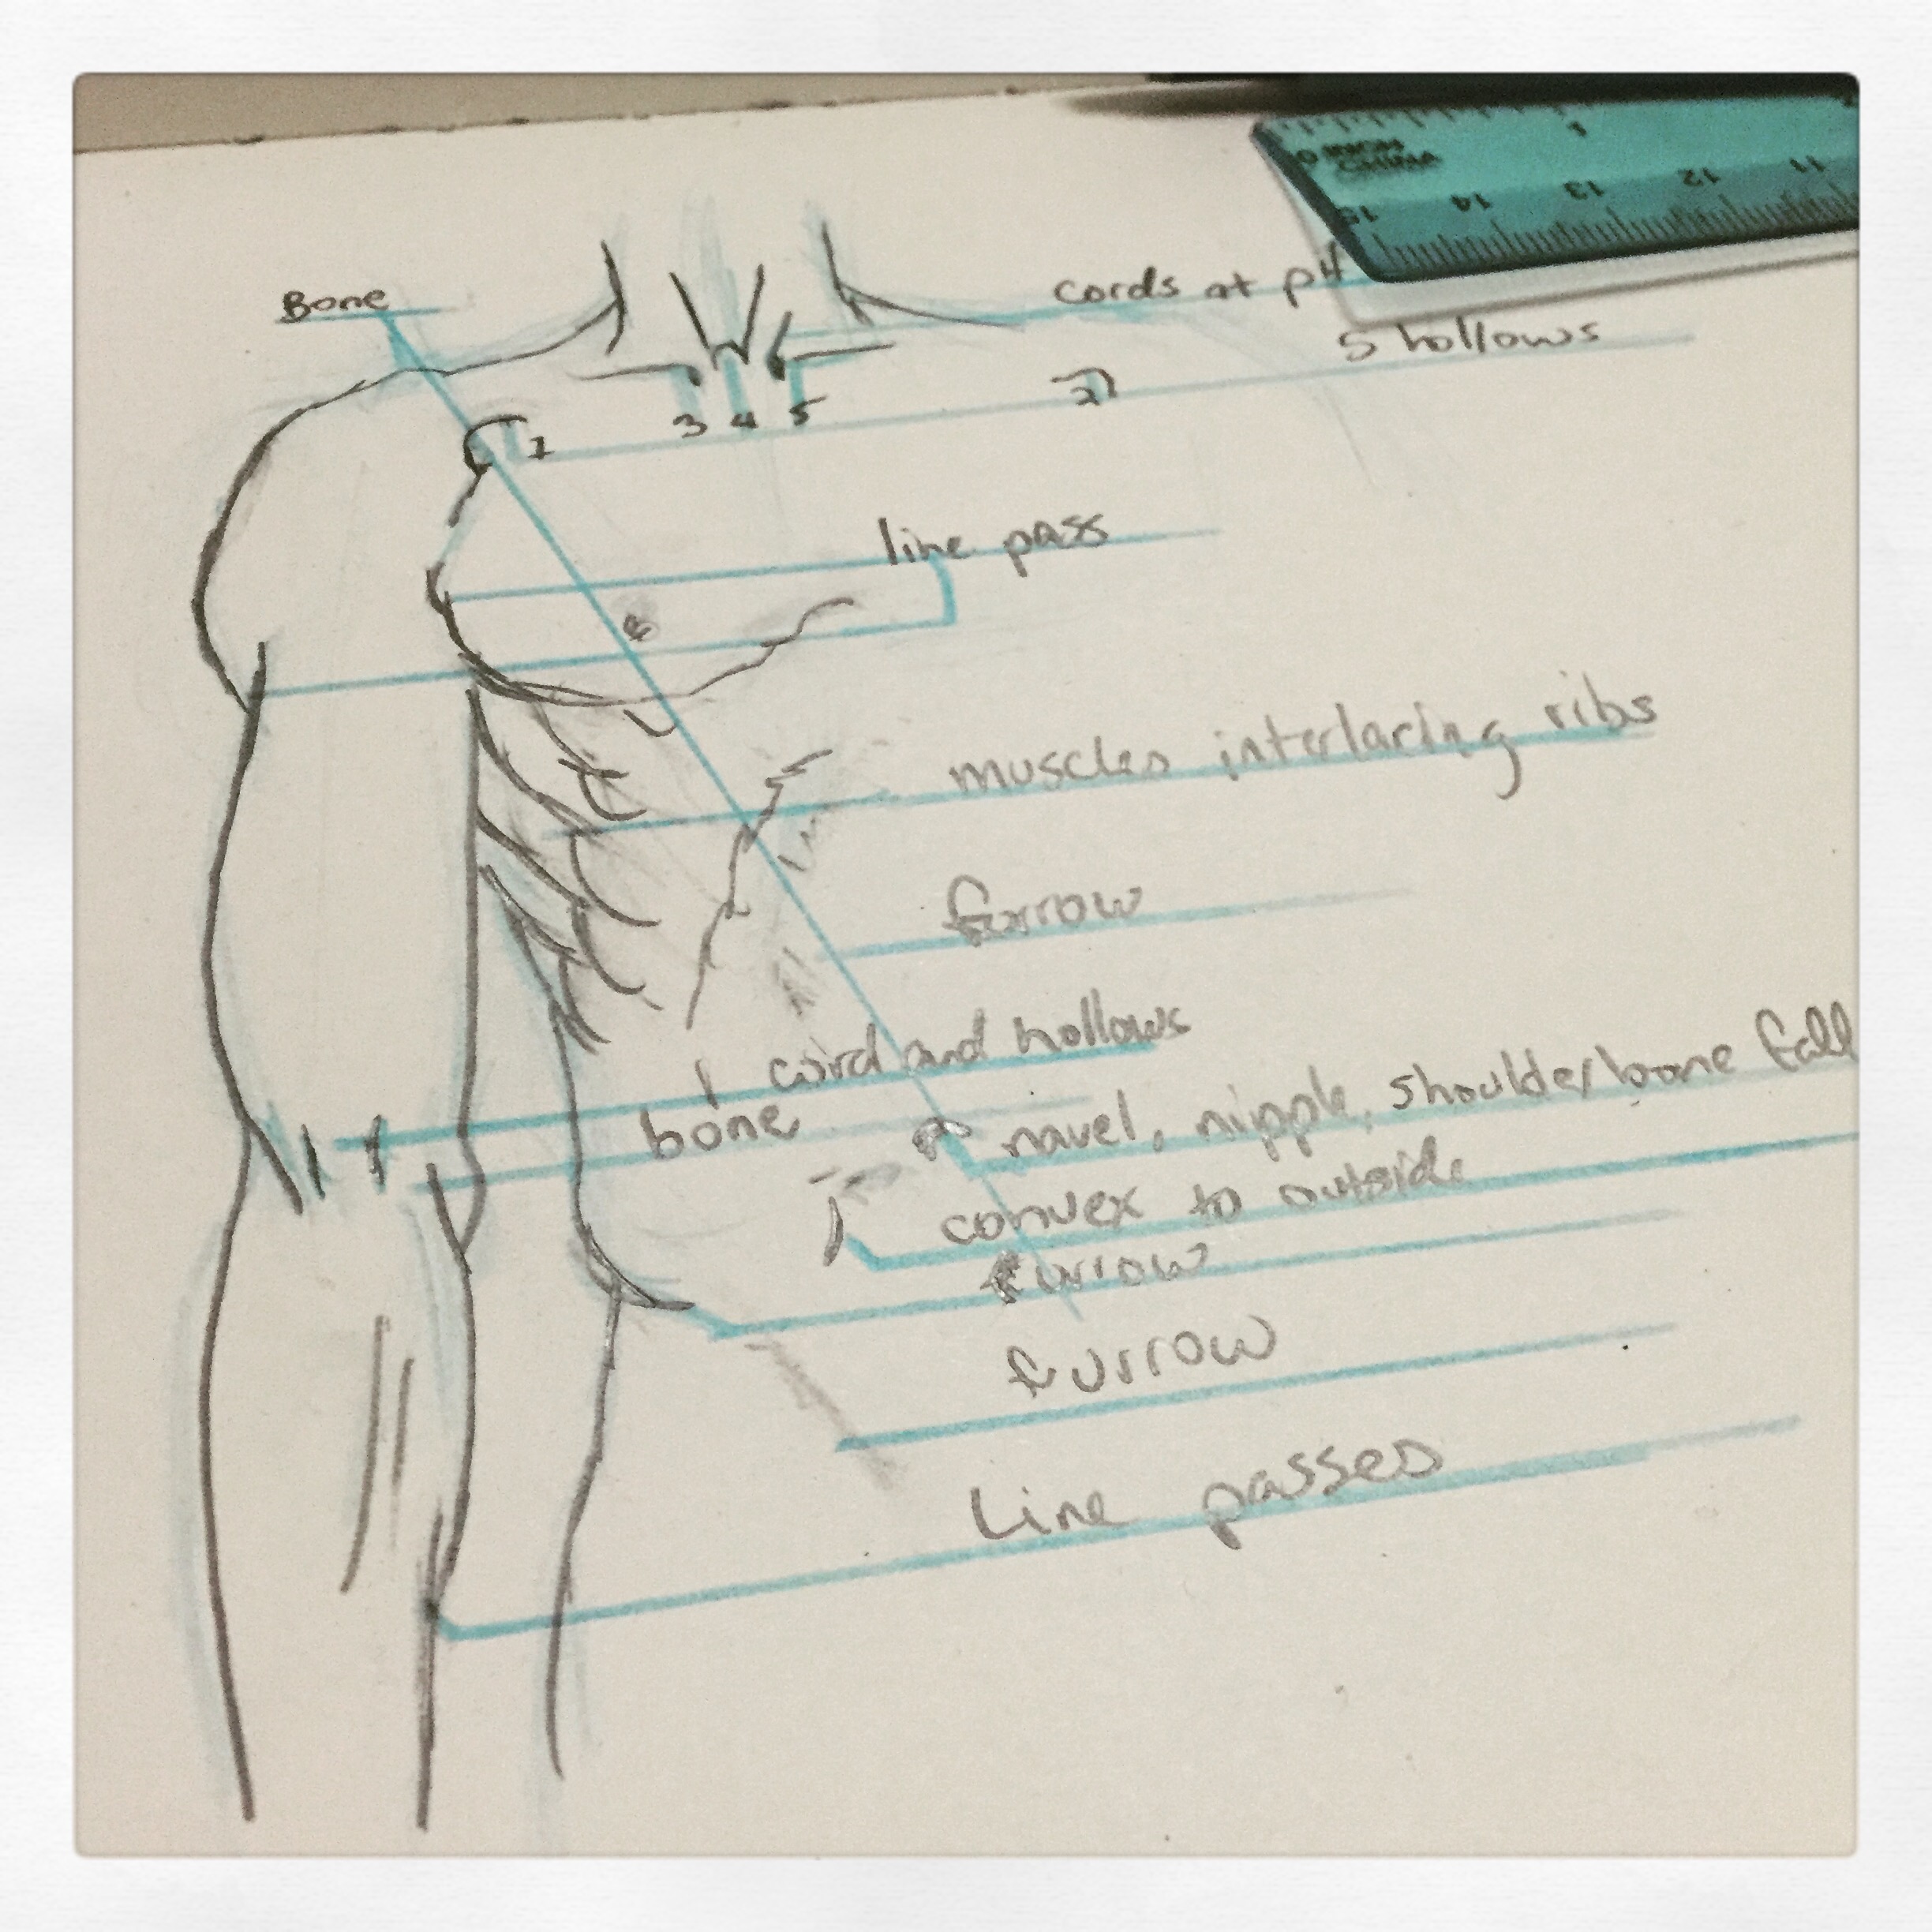 Bone
cords at p4
5 hollows
1
2
3 4 5
line pass
muscles interlacing ribs
furrow
cord and hollows
bone
navel, nipple, shoulder bone fall
convex to outside
furrow
furrow
Line passes
0 INCH 1
CHINA
15 14 13 12 11